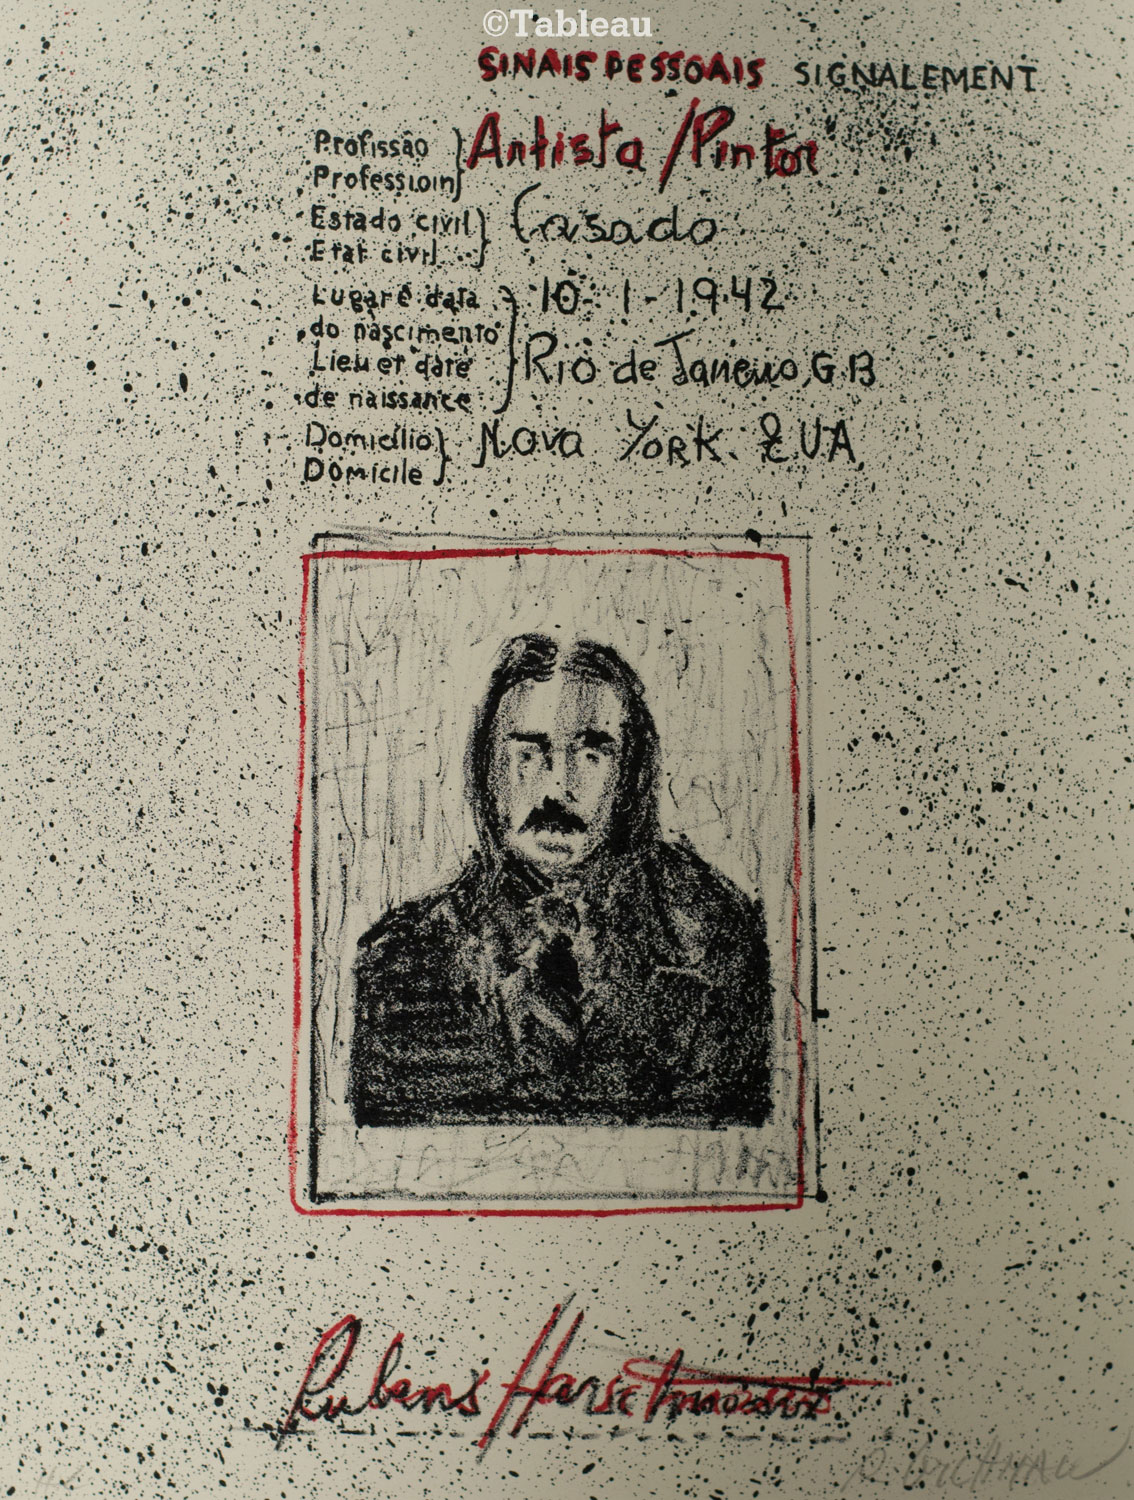 ©Tableau
SINAIS PESSOAIS SIGNALEMENT
Profissão
Professioin
Artista/Pintor
Estado civil
Etat civil
Casado
Lugar e data
do nascimento
Lieu et date
de naissance
10-1-1942
Rio de Janeiro, G.B
Domicílio
Domicile
Nova York. E.U.A
Rubens